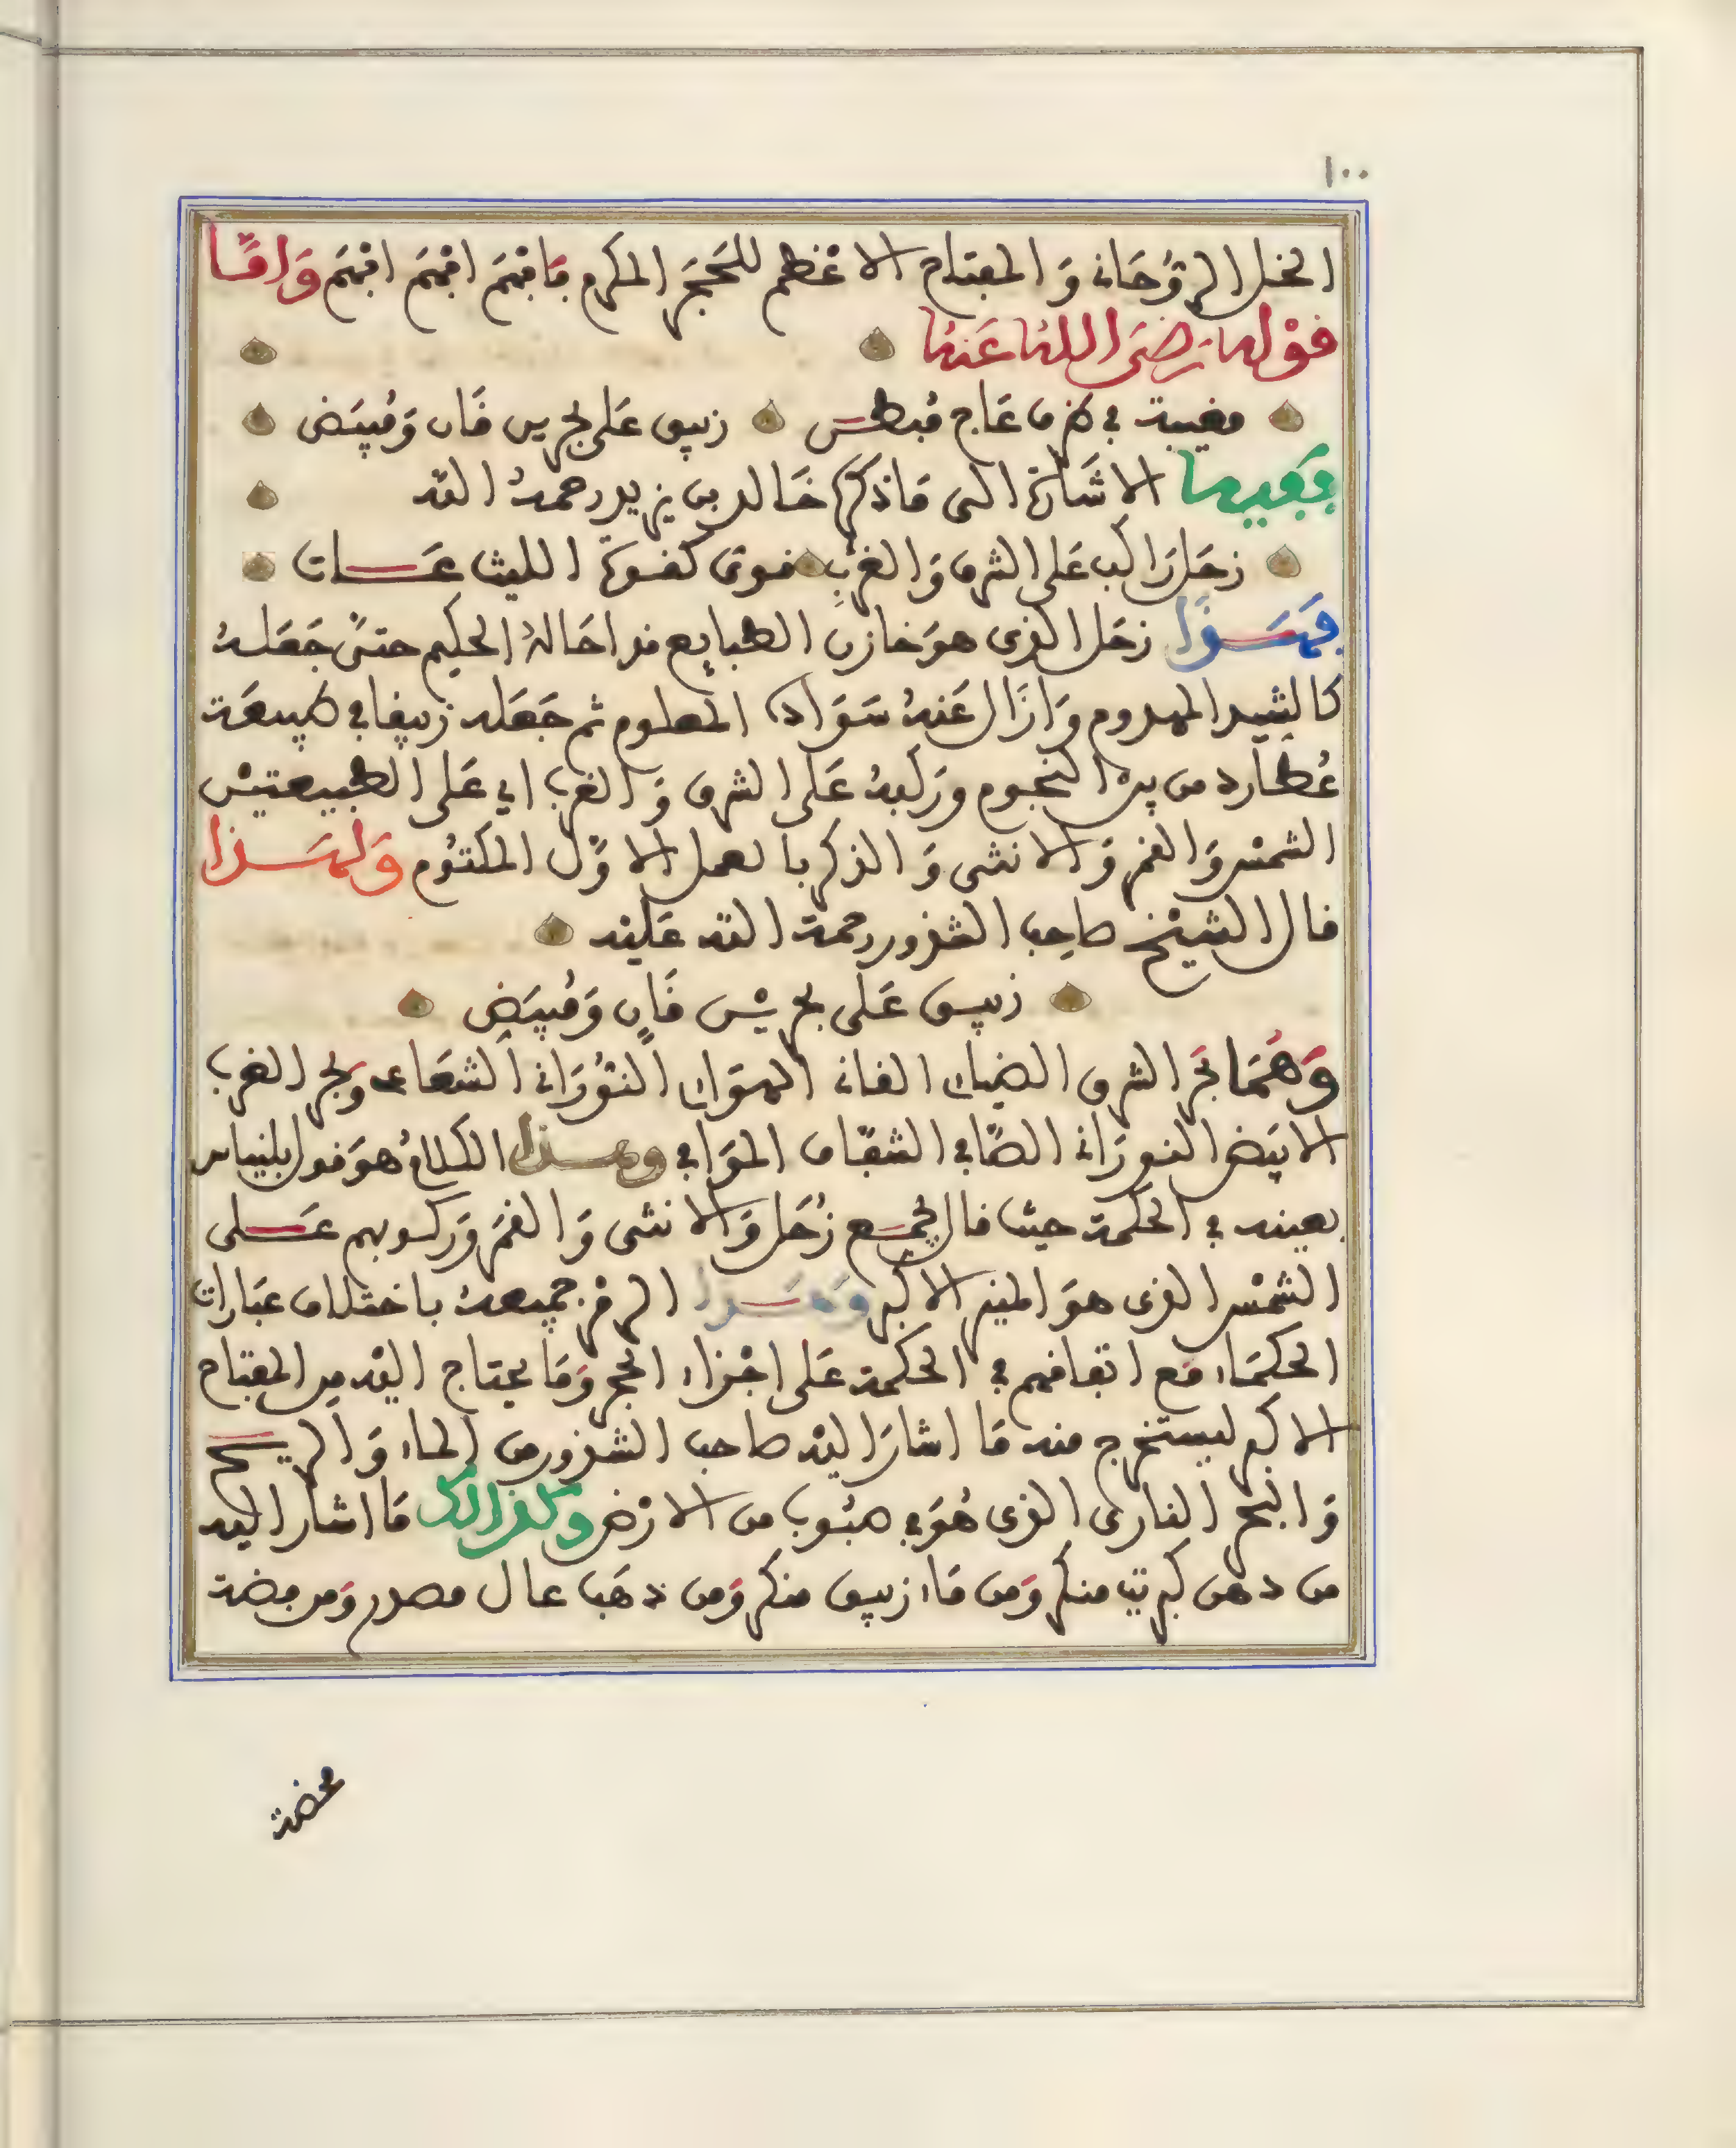 ١٠٠
الخل الروحاني وَالمفتاح الاعْظم للحَجَر المكرم فَافهَم افهَم افهَم وَامَّا
قوْله رَضيَ اللهُ عَنهُ
في طرف عَاج مُبطس زيبق عَلى بحرين قَان وَمُبيَض
ففيه الاشَارة الى مَا ذكره خَالد بن يزيد رحمهُ الله
زحَل رَاكب عَلى الشرق وَالغرْبِ قوى كقوة الليث عَات
فهَذَا زحَل الذي هوَ خازن الطبايع قد احَالهُ الحكيم حتىَّ جَعَلهُ
كالشيد المهدوم وَازَال عَنهُ سَوَاده المعلوم ثم جَعَله زيبقا في طبيعَة
عُطارد من بين النجوم وركبهُ عَلى الشرق وَالغرب اي عَلى الطبيعتيْن
الشمْس وَالقمر وَالانثى وَالذكر بالعمل الاوَّل المكتوُم وَلهَذا
قال الشيْخ صاحِب الشذور رحمة الله عَليْه
زيبق عَلى بحريْن قَانٍ وَمُبيَض
وَهُمَا بَحر الشرق الضياى القانى الهوَاى النوُرَانى الشعَاعى وبحر الغرب
الابيَض النورَانى الصَّافي الشفَّاف الهوَاي وهذا الكلامُ هوَ قول بلنياس
بعينه في الحكمة حيث قال يجمع زُحَل وَالانثى وَالقمَر وَركوبهم عَلى
الشمْس الذي هوَ المنير الاكبر وَهَذا الرمز جميعهُ باختلاف عبَارات
الحكمَاء مَع اتفاقهم في الحكمة عَلى اجْزاء الحجر وَمَا يحتاج اليْه من المفتاح
الاكبر ليستخرج منه مَا اشارَ اليْه صاحب الشذور من الماء وَالريح
وَالبحر النارى الذي هُوَ في هبُوب من الارْض وكذالك مَا اشار اليه
من دهن كبريت منكر وَمن مَاء زيبق منكر وَمن ذهَب عال مصدر وَمن فضة
محضة